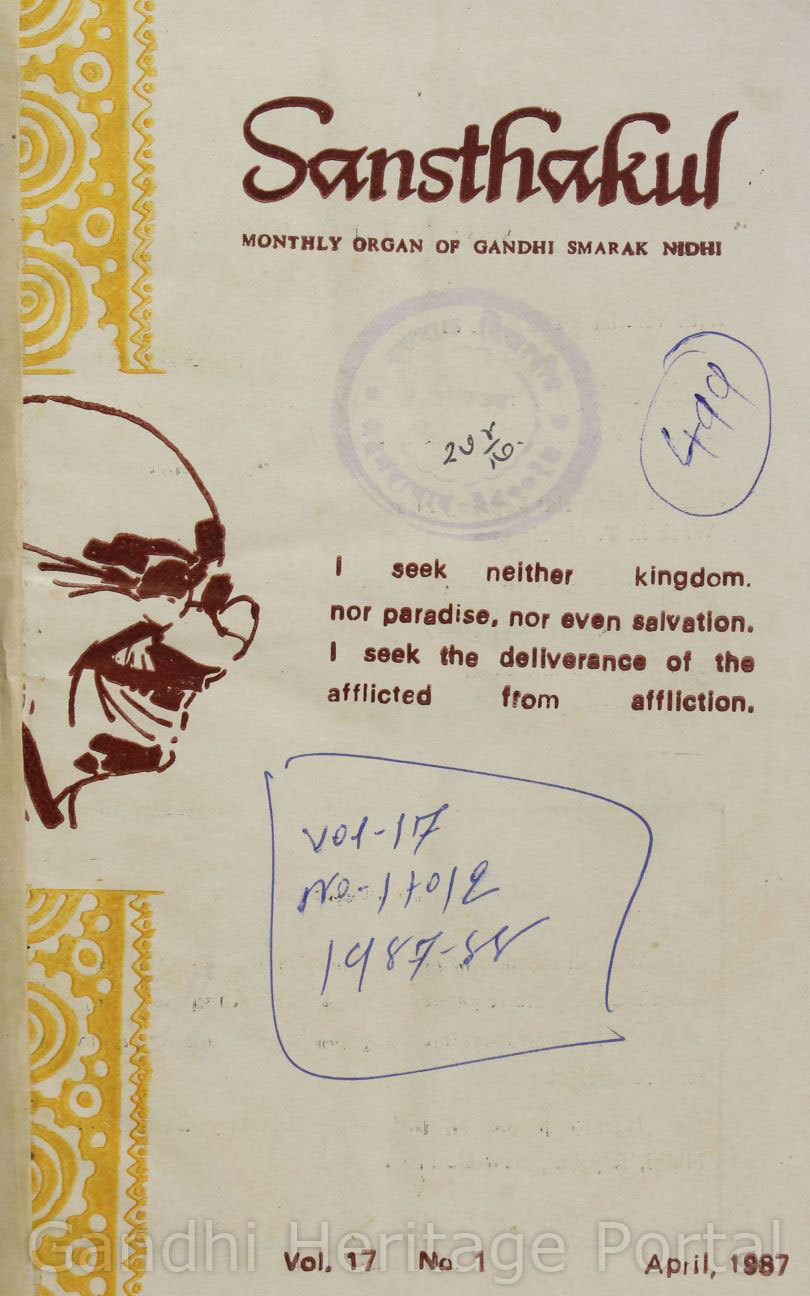 Sansthakul
MONTHLY ORGAN OF GANDHI SMARAK NIDHI
499
I seek neither kingdom.
nor paradise, nor even salvation.
I seek the deliverance of the
afflicted from affliction.
Vol-17
No-1 to 12
1987-88
Gandhi Heritage Portal
Vol. 17 No. 1 April, 1987